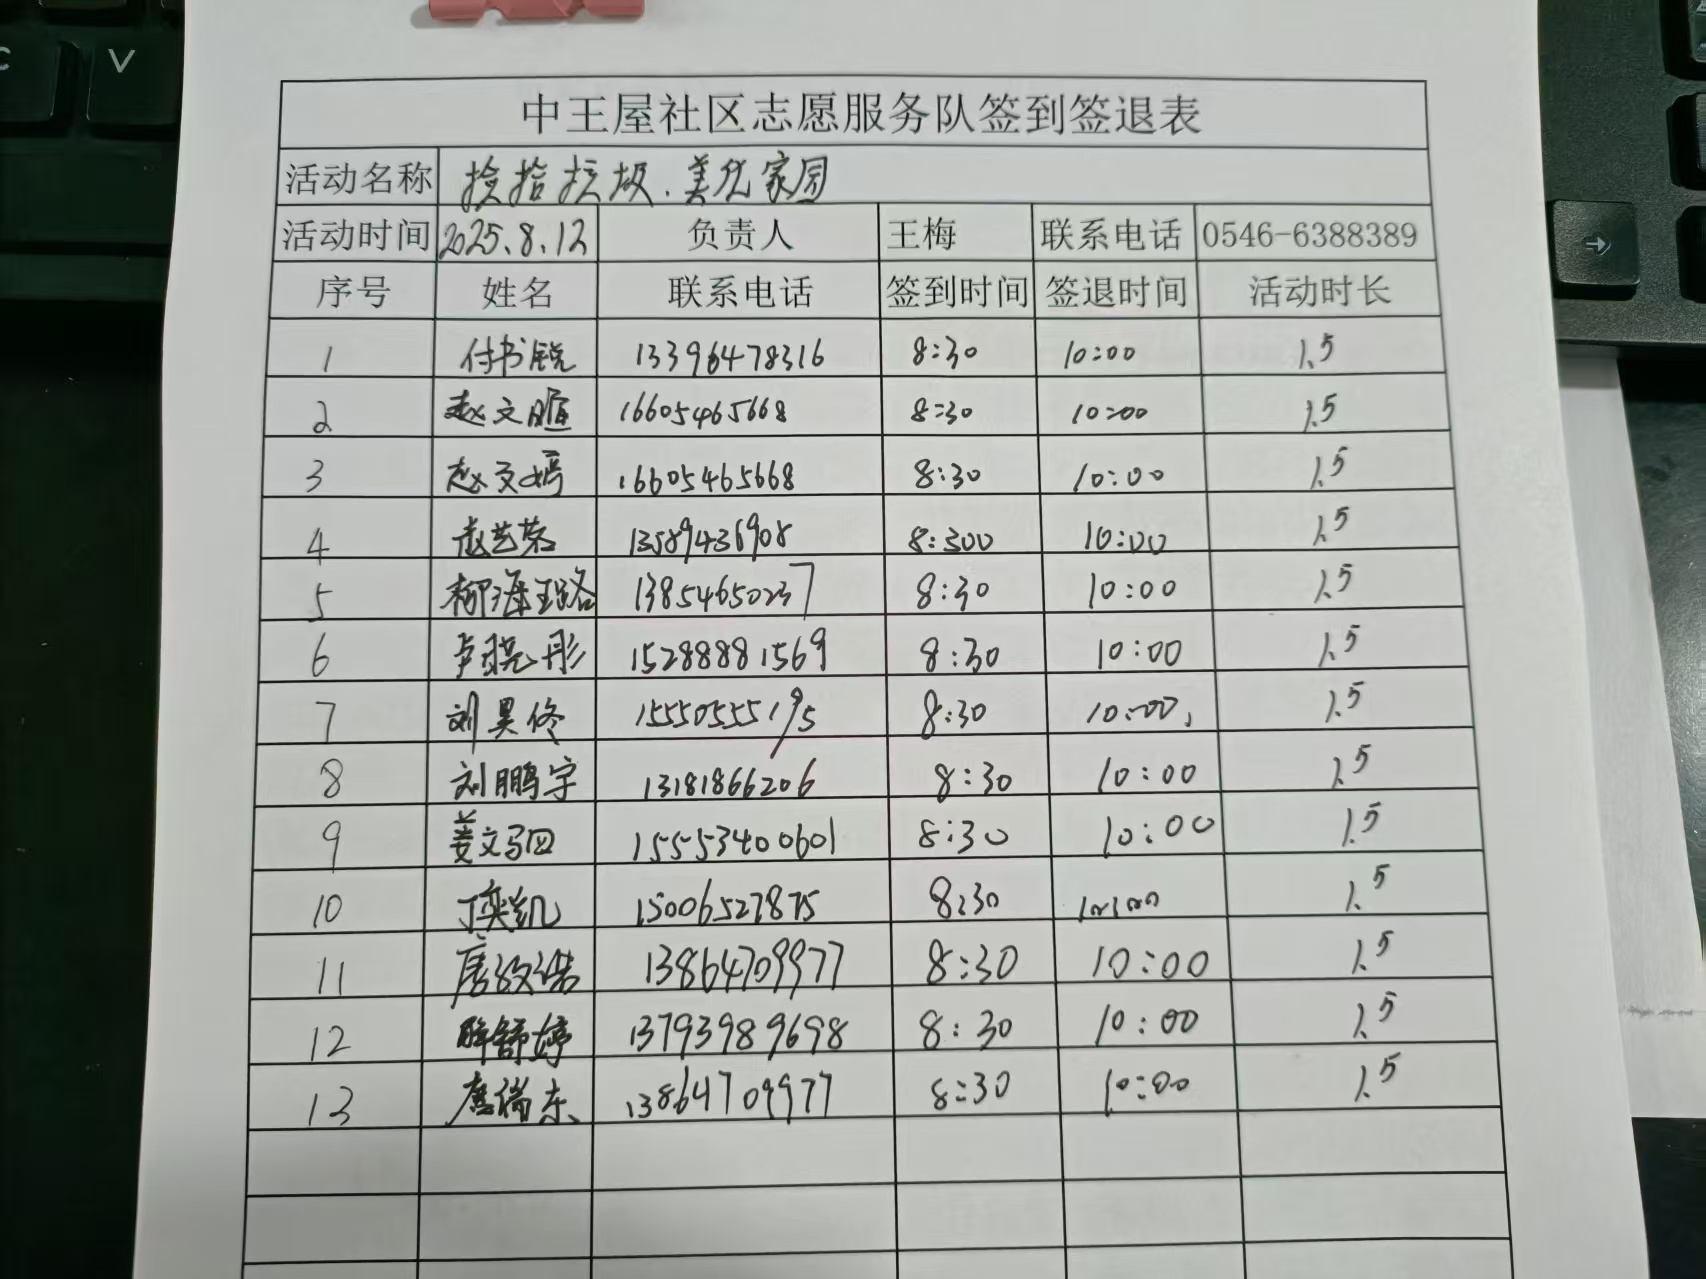 中王屋社区志愿服务队签到签退表
活动名称 捡拾垃圾.美化家园
活动时间 2025.8.12 负责人 王梅 联系电话 0546-6388389
序号 姓名 联系电话 签到时间 签退时间 活动时长
1 付书锐 13396478316 8:30 10:00 1.5
2 赵文 16605465668 8:30 10:00 1.5
3 赵文嫣 16605465668 8:30 10:00 1.5
4 赵艺荣 13589436908 8:300 10:00 1.5
5 柳海璐 13854650237 8:30 10:00 1.5
6 卢晓彤 15288881569 8:30 10:00 1.5
7 刘昊佟 15550555195 8:30 10:00, 1.5
8 刘鹏宇 13181866206 8:30 10:00 1.5
9 姜文骃 15553400601 8:30 10:00 1.5
10 丁奕凯 15006527875 8:30 10:00 1.5
11 唐诺 13864709977 8:30 10:00 1.5
12 舒婷 13793989698 8:30 10:00 1.5
13 唐瑞东 13864709977 8:30 10:00 1.5
C V